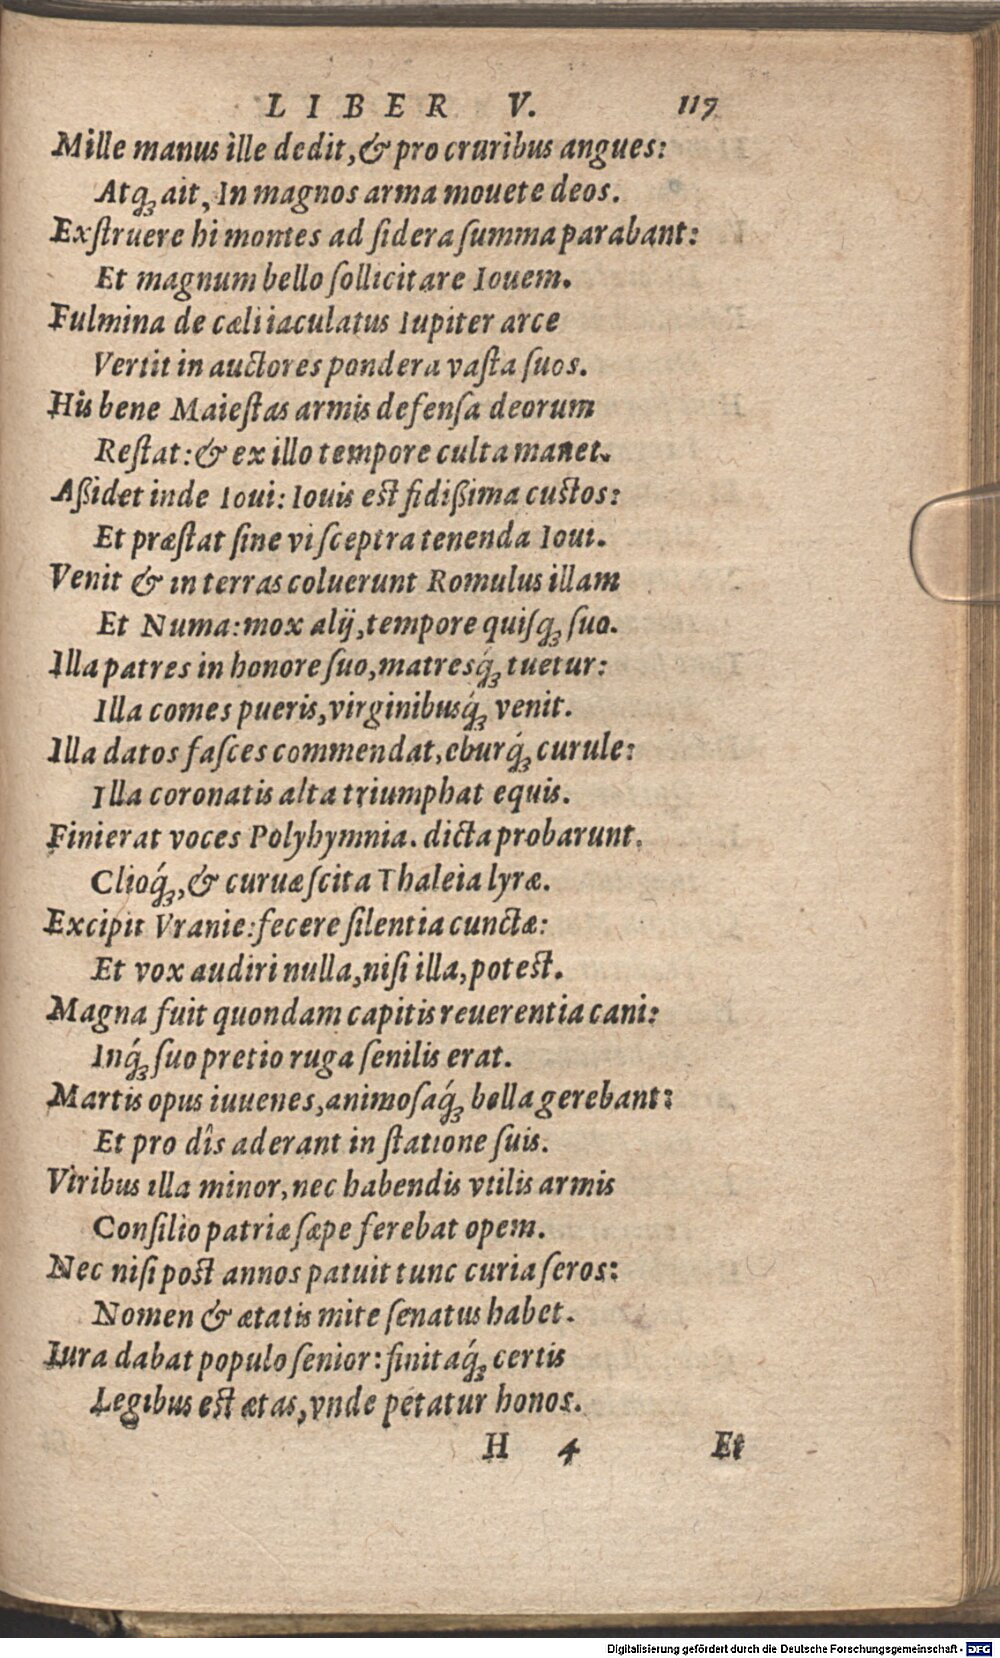 LIBER V. 117
Mille manus ille dedit, & pro cruribus angues:
Atqꝫ ait, In magnos arma mouete deos.
Exſtruere hi montes ad ſidera ſumma parabant:
Et magnum bello ſollicitare Iouem.
Fulmina de cæli iaculatus Iupiter arce
Vertit in auctores pondera vaſta ſuos.
His bene Maieſtas armis defenſa deorum
Reſtat: & ex illo tempore culta manet.
Aßidet inde Ioui: Iouis eſt fidißima cuſtos:
Et præſtat ſine vi ſceptra tenenda Ioui.
Venit & in terras coluerunt Romulus illam
Et Numa: mox alij, tempore quiſqꝫ ſuo.
Illa patres in honore ſuo, matresq́ꝫ tuetur:
Illa comes pueris, virginibusq́ꝫ venit.
Illa datos faſces commendat, eburq́ꝫ curule:
Illa coronatis alta triumphat equis.
Finierat voces Polyhymnia. dicta probarunt.
Clioq́ꝫ, & curuæ ſcita Thaleia lyræ.
Excipit Vranie: fecere ſilentia cunctæ:
Et vox audiri nulla, niſi illa, poteſt.
Magna fuit quondam capitis reuerentia cani:
Inq́ꝫ ſuo pretio ruga ſenilis erat.
Martis opus iuuenes, animoſaq́ꝫ bella gerebant:
Et pro dîs aderant in ſtatione ſuis.
Viribus illa minor, nec habendis vtilis armis
Conſilio patriæ ſæpe ferebat opem.
Nec niſi poſt annos patuit tunc curia ſeros:
Nomen & ætatis mite ſenatus habet.
Iura dabat populo ſenior: finitaq́ꝫ certis
Legibus eſt ætas, vnde petatur honos.
H 4 Et
Digitalisierung gefördert durch die Deutsche Forschungsgemeinschaft - DFG